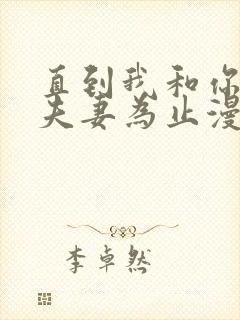 直到我和你
夫妻为止漫
李卓然